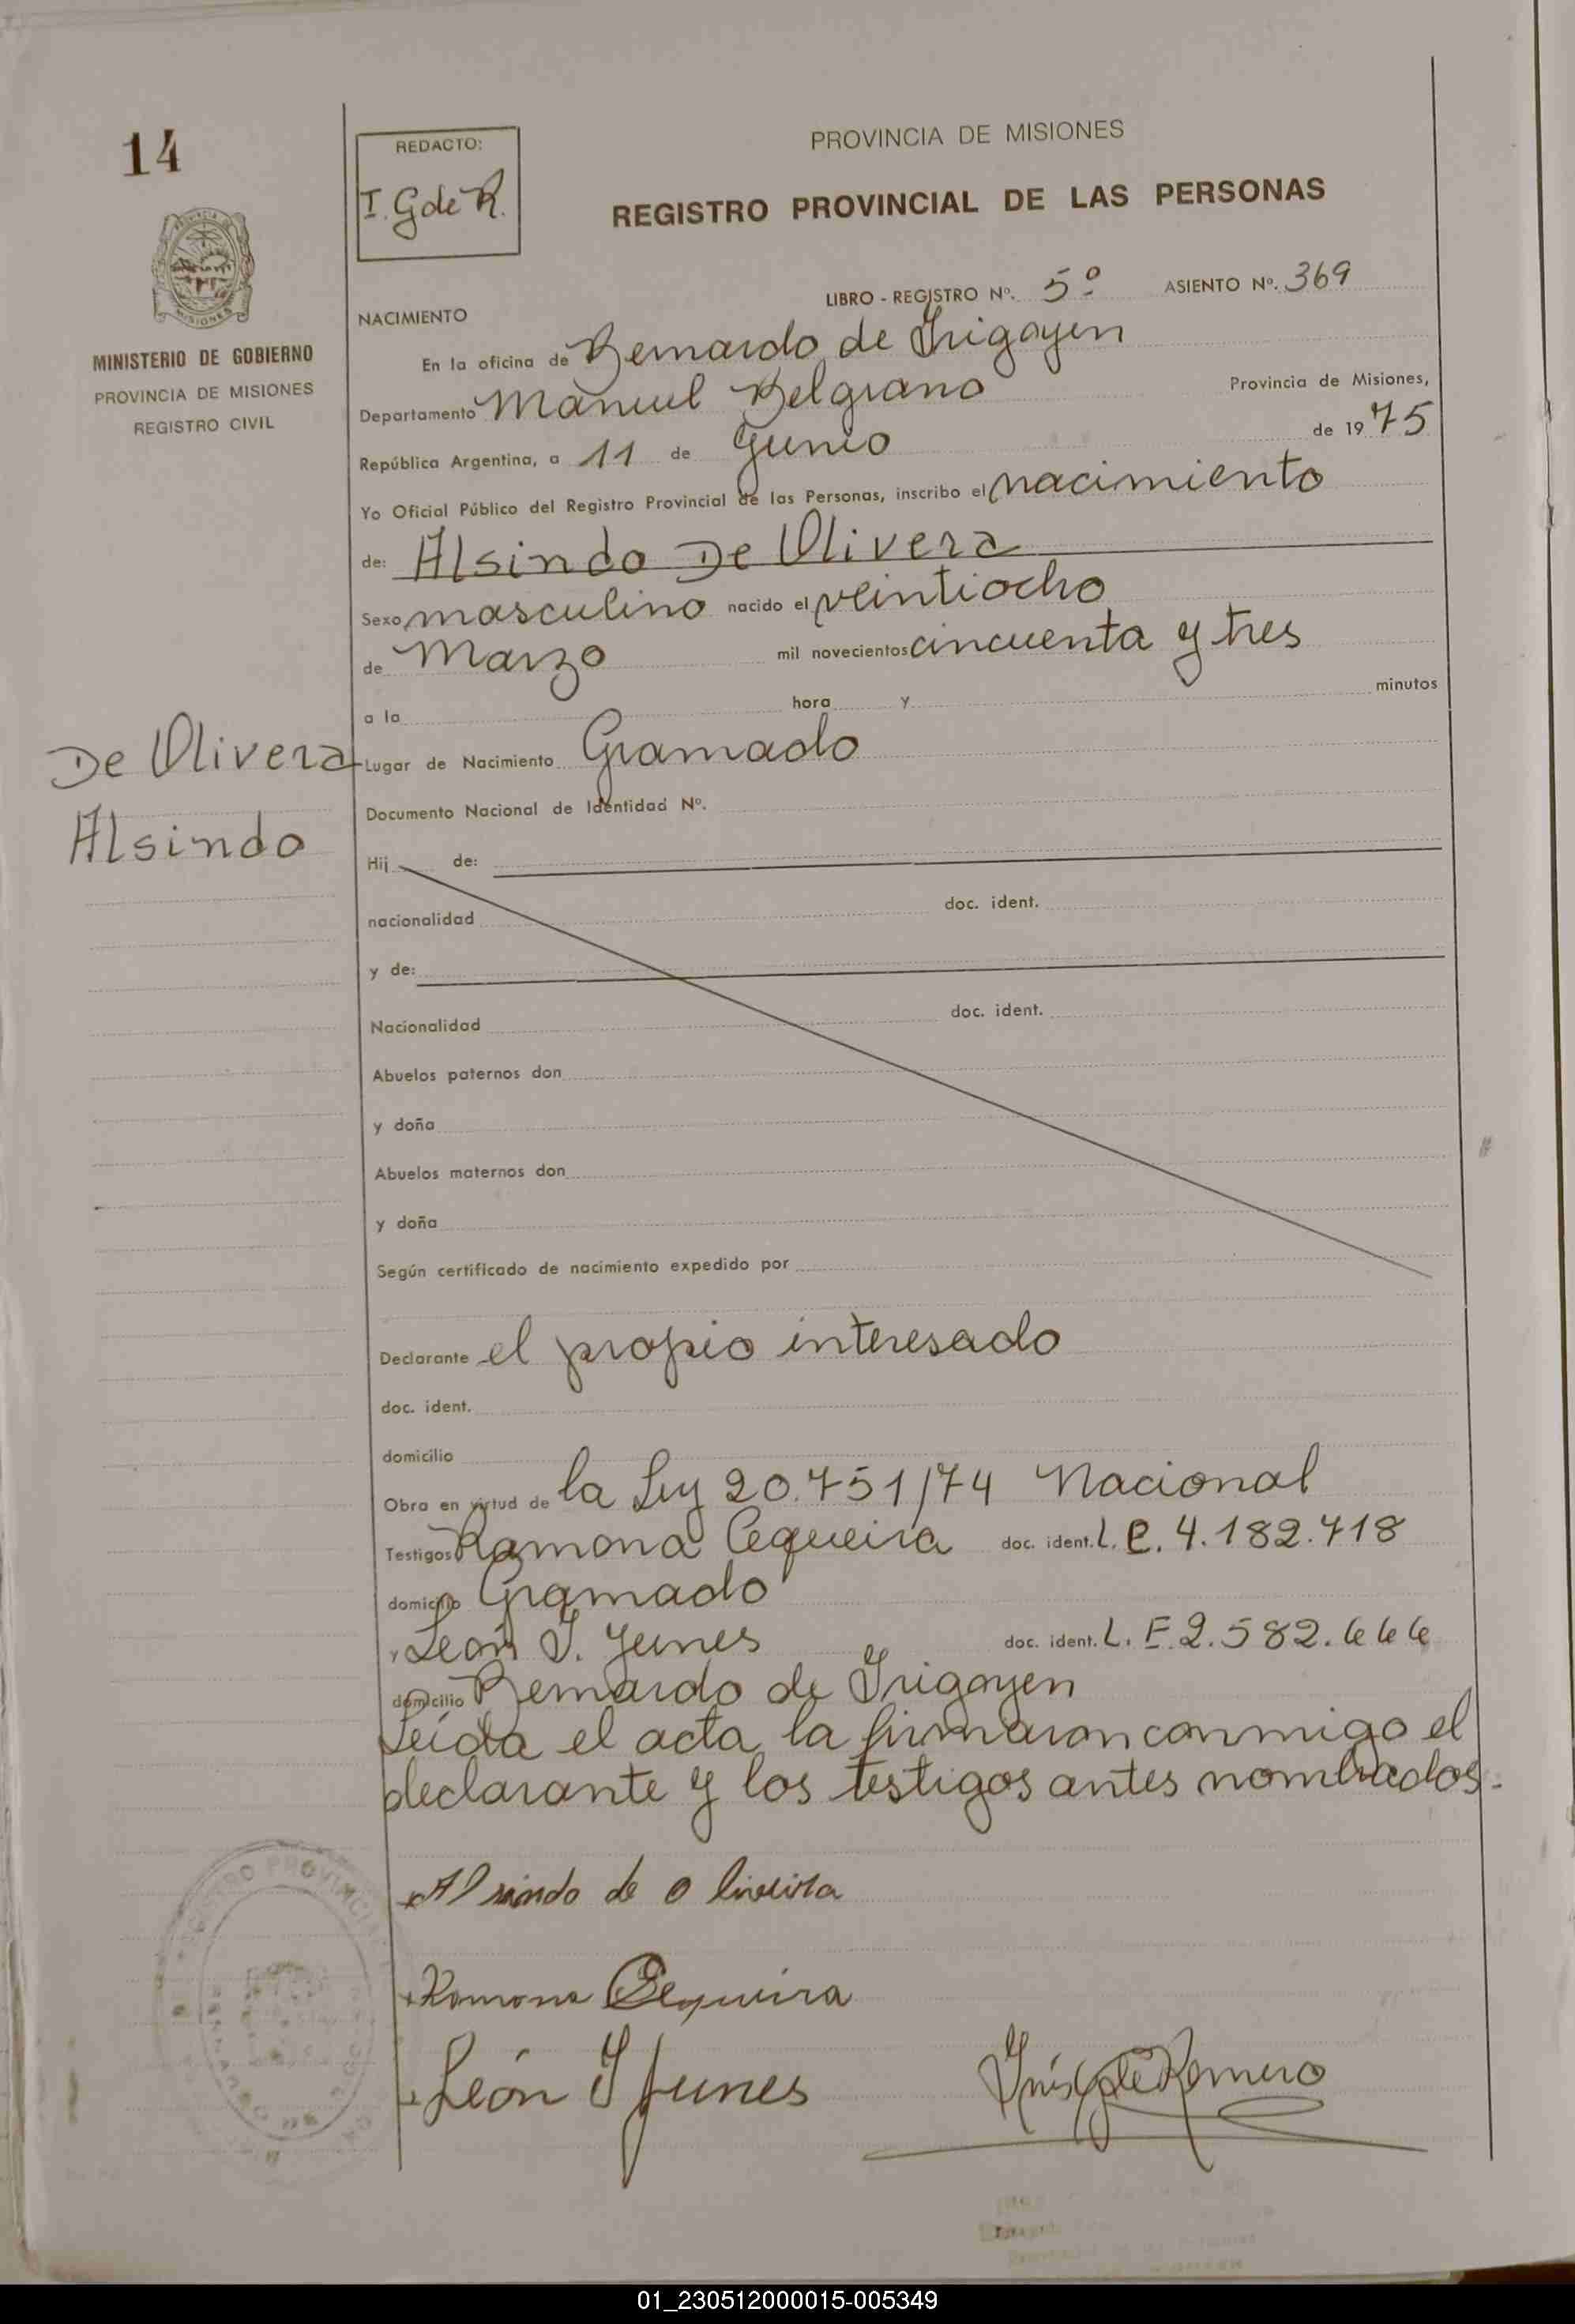 14
REDACTO:
I. G de R.
PROVINCIA DE MISIONES
REGISTRO PROVINCIAL DE LAS PERSONAS
MISIONES
MINISTERIO DE GOBIERNO
PROVINCIA DE MISIONES
REGISTRO CIVIL
LIBRO - REGISTRO Nº. 5º ASIENTO Nº. 369
NACIMIENTO
En la oficina de Bernardo de Irigoyen
Departamento Manuel Belgrano Provincia de Misiones,
República Argentina, a 11 de Junio de 1975
Yo Oficial Público del Registro Provincial de las Personas, inscribo el nacimiento
de: Alsindo De Olivera
Sexo masculino nacido el veintiocho
de Marzo mil novecientos cincuenta y tres
a la hora y minutos
De Olivera
Alsindo
Lugar de Nacimiento Gramado
Documento Nacional de Identidad Nº.
Hij de:
nacionalidad doc. ident.
y de:
Nacionalidad doc. ident.
Abuelos paternos don
y doña
Abuelos maternos don
y doña
Según certificado de nacimiento expedido por
Declarante el propio interesado
doc. ident.
domicilio
Obra en virtud de la Ley 20.751/74 Nacional
Testigos Ramona Cequeira doc. ident. L. C. 4.182.718
domicilio Gramado
y León I. Junes doc. ident. L. E. 2.582.666
domicilio Bernardo de Irigoyen
Leída el acta la firmaron conmigo el
declarante y los testigos antes nombrados.
Alsindo de oliveira
Ramona Cequeira
León I Junes
Inés G de Romero
01_230512000015-005349